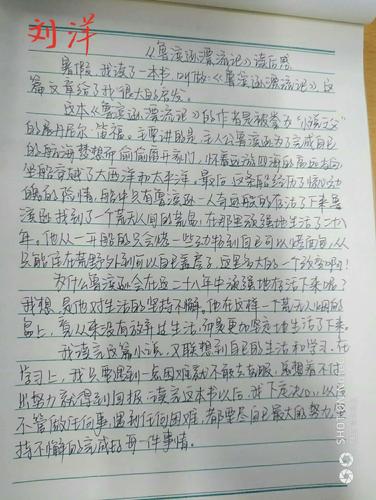 刘洋
《鲁滨逊漂流记》读后感
暑假,我读了一本书,叫做《鲁滨逊漂流记》,这
篇文章给了我很大的启发。
这本《鲁滨逊漂流记》的作者是被誉为“小说之父”
的丹尼尔·笛福。主要讲的是:主人公鲁滨逊为了完成自己
的航海梦想而偷偷离开家门,怀着远游四海的高远志向,
坐船穿越了大西洋和太平洋。最后,这条船经历了惊心动
魄的险情,船中只有鲁滨逊一人奇迹般的存活了下来。鲁
滨逊找到了一个荒无人烟的荒岛,在那里顽强地生活了二十八
年。他从一开始的只会烤一些动物到自己可以烤面包,从
只能住在荒野外到可以自己盖房子,这是多大的一个改变啊!
为什么鲁滨逊会在这二十八年中顽强地存活下来呢?
我想,是他对生活的坚持不懈。他在这样一个荒无人烟的
岛上,看从来没有放弃过生活,而是更加坚定地生活了下来。
我读完这篇小说,又联想到自己的生活和学习。在
学习上,我只要遇到一点困难就不敢去克服,总想着不付
出努力就得到回报。读完这本书以后,我下定决心,以后
不管做任何事,遇到任何困难,都要尽自己最大的努力,坚
持不懈的完成好每一件事情。